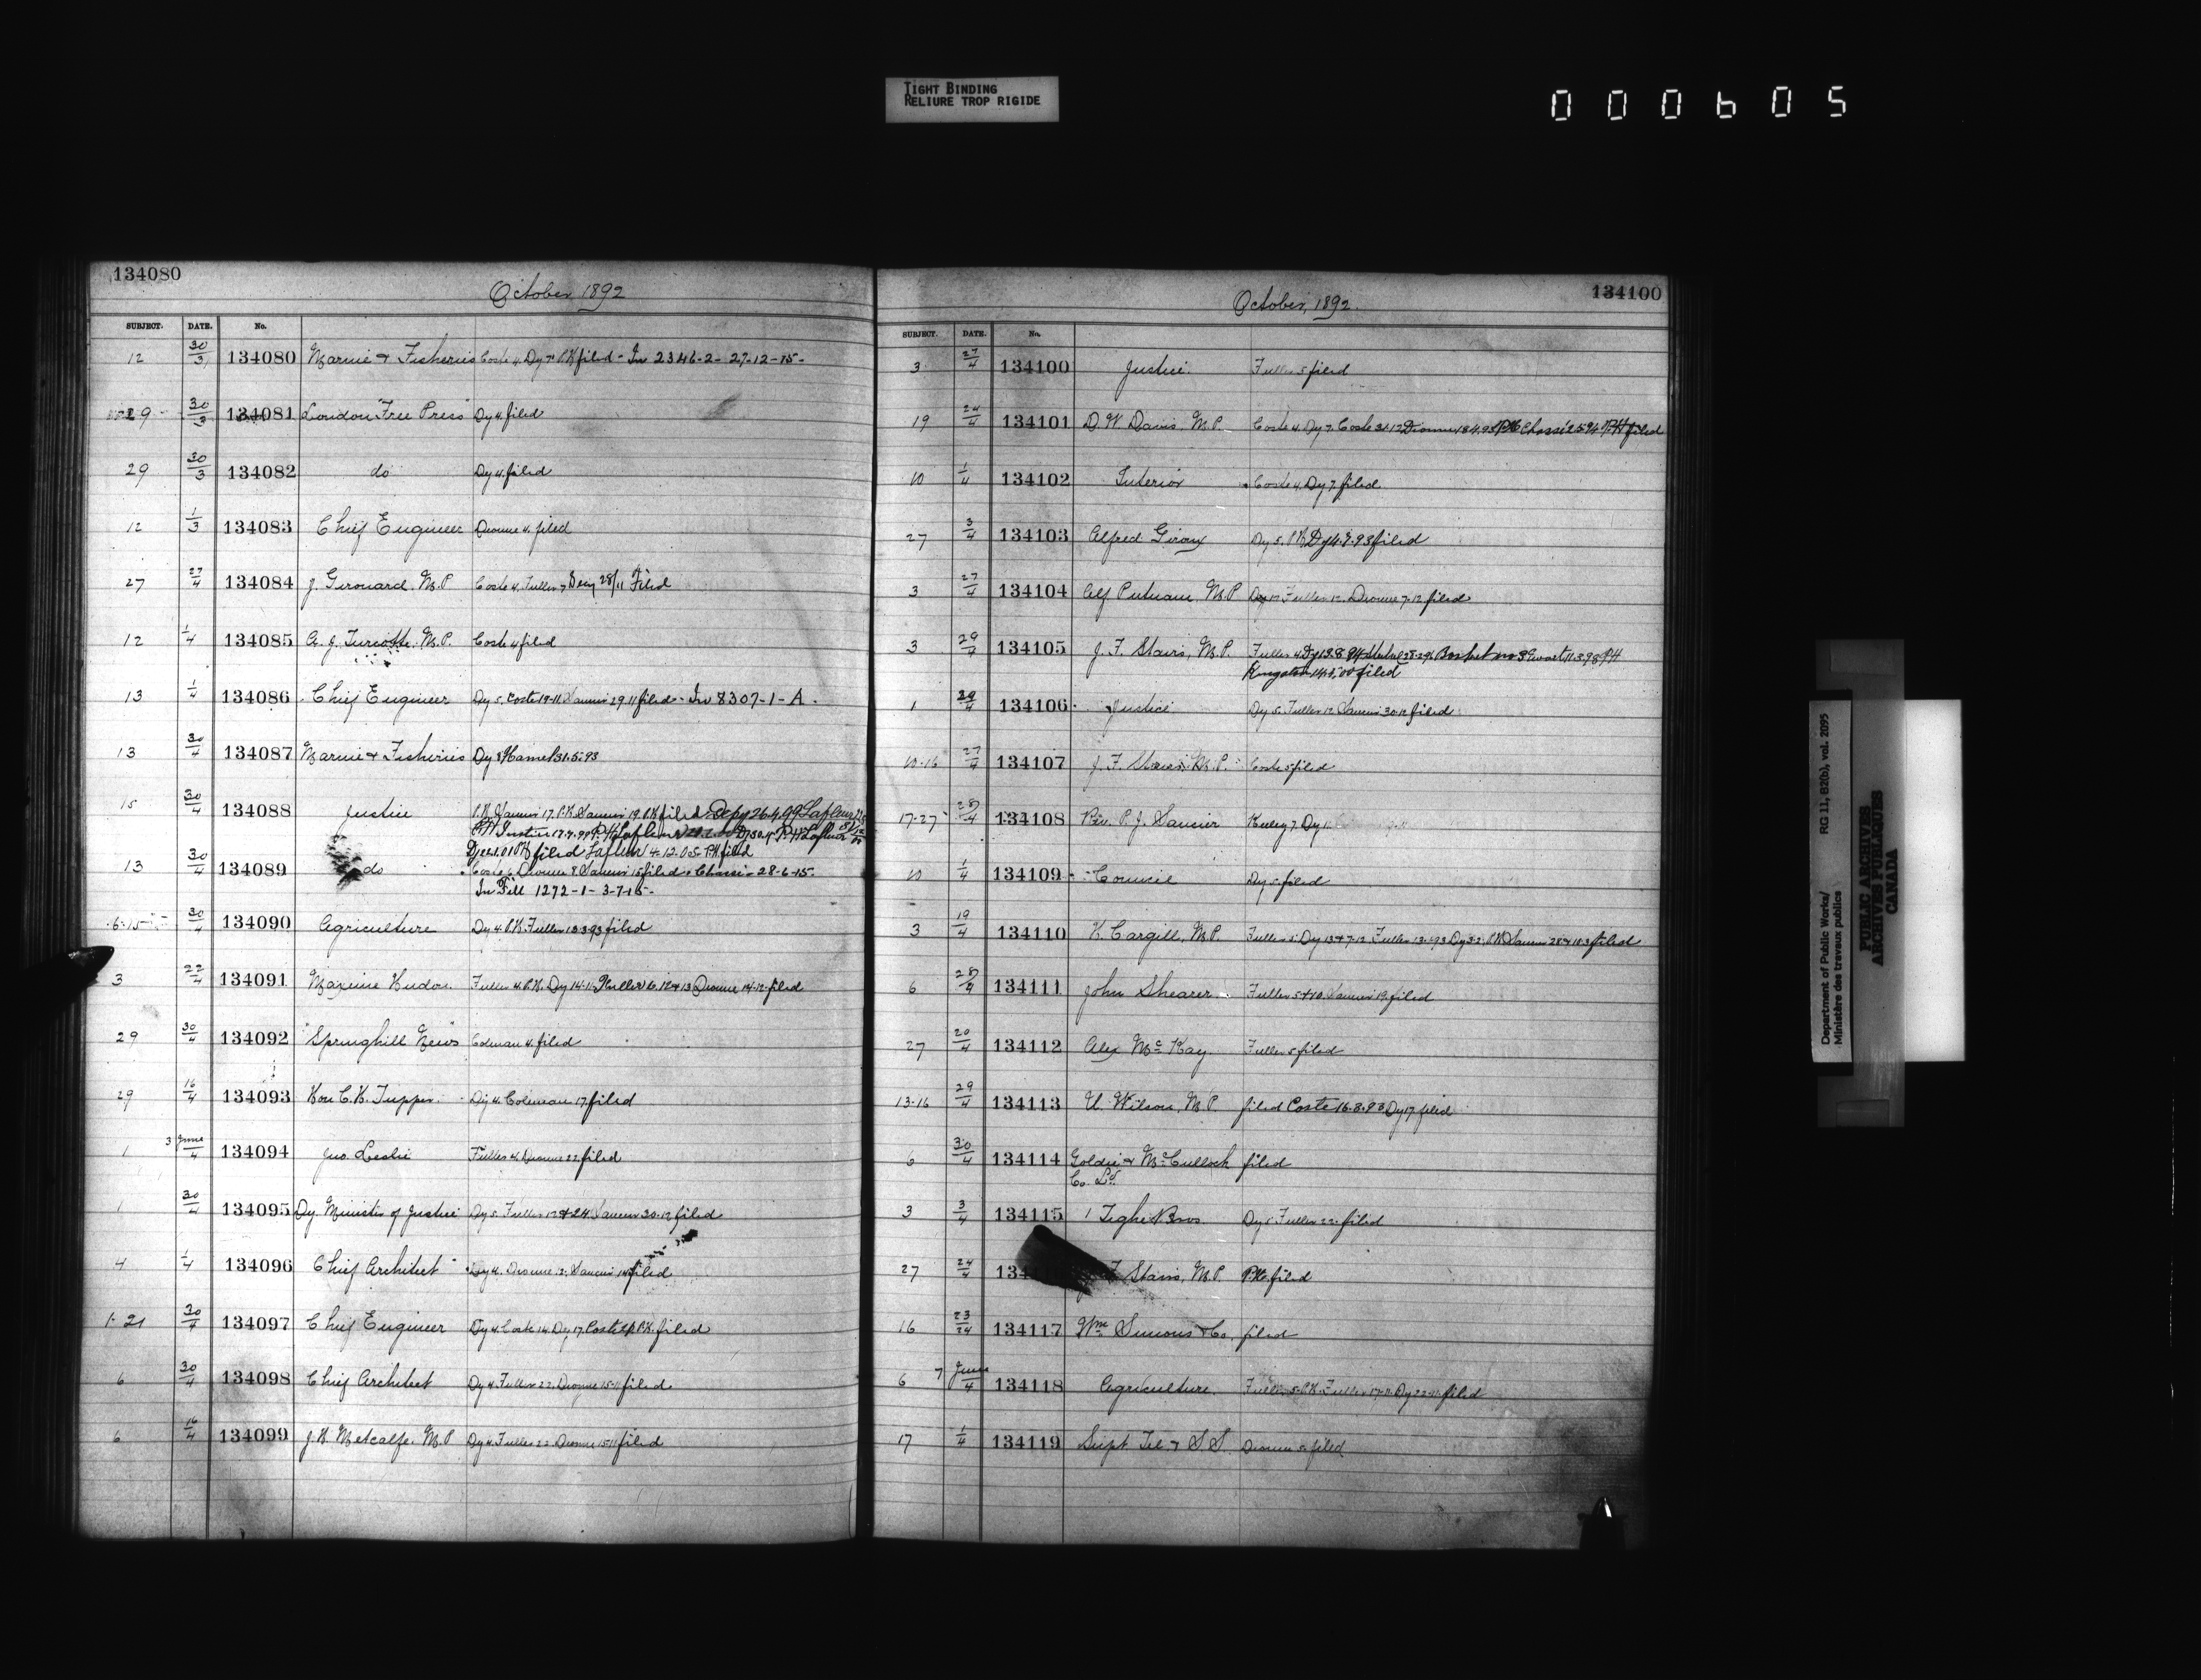 TIGHT BINDING
RELIURE TROP RIGIDE
000605
134080
October 1892
SUBJECT. DATE. No.
12 30/3 134080 Marine & Fisheries Coste 4. Dy 7. P.K filed - In 2346-2- 27-12-15-
29 30/3 134081 London "Free Press" Dy 4. filed
29 30/3 134082 do Dy 4. filed
12 1/3 134083 Chief Engineer Dionne 4. filed
27 27/4 134084 J. Girouard. M.P Coste 4. Fuller 7 28/11 Filed
12 1/4 134085 A. J. Turcotte. M.P. Coste 4 filed
13 1/4 134086 Chief Engineer Dy 5. Coste 19-11 29.11 filed - In 8307-1-A.
13 30/4 134087 Marine & Fisheries Dy 8 Hamel 31.5.93
15 30/4 134088 Justice P.K. 17. P.K 19. P.K filed Depy 26.4.99 Lafleur
filed Lafleur 4.12.05 P.K filed
13 30/4 134089 do Coste 6 Dionne 8 15 filed Chassé 28-6-15-
In File 1272-1-3-7-15-
6-15 30/4 134090 Agriculture Dy 4. P.K. Fuller 13.3.93 filed
3 22/4 134091 Maxime Hudon Fuller 4. P.K. Dy 14-11 Fuller 16. 12 & 13 Dionne 14-12 filed
29 30/4 134092 "Springhill News" Colman 4. filed
29 16/4 134093 Hon C.H. Tupper. Dy 4. Coleman 17 filed
1 3 June/4 134094 Jno. Leslie Fuller 4. Dionne 22. filed
1 30/4 134095 Dy. Minister of Justice Dy 5. Fuller 12 & 24. 30-12 filed
4 1/4 134096 Chief Architect Dy 4. Dionne 12. filed
1-21 30/4 134097 Chief Engineer Dy 4. Coste 14. Dy 17. Coste P.K. filed
6 30/4 134098 Chief Architect Dy 4. Fuller 22. Dionne 15-11 filed
6 16/4 134099 J.H. Metcalfe. M.P Dy 4. Fuller 22. Dionne 15-11 filed
134100
October, 1892.
SUBJECT. DATE. No.
3 27/4 134100 Justice. Fuller 5 filed
19 24/4 134101 D. W Davis. M.P. Coste 4. Dy 7. Coste 31.12 Dionne 18.4.95 P.K Chassé 25.94 P.K filed
10 1/4 134102 Interior Coste 4. Dy 7. filed
27 3/4 134103 Alfred Giroux Dy 5. P.K Dy 4.9.93 filed
3 27/4 134104 Alf Putnam, M.P Fuller 12. Dionne 7-12 filed
3 29/4 134105 J. F. Stairs, M.P. Fuller 4 Dy 13.8.94 Ewart 11.3.98 P.H
Kingston filed
1 29/4 134106 Justice Dy 5. Fuller 12 30-12 filed
10-16 27/4 134107 J. F. Stairs. M.P. Coste 5 filed
17-27 28/4 134108 Rev. P. J. Saucier Keeley 7. Dy
10 1/4 134109 Council Dy 5. filed
3 19/4 134110 H. Cargill, M.P. Fuller 5. Dy 13 & 7-12. Fuller 13-1-93 Dy 3-2. P.K filed
6 28/4 134111 John Shearer. Fuller 5 & 10. 19. filed
27 20/4 134112 Alex McKay Fuller 5 filed
13-16 29/4 134113 U. Wilson, M.P. filed Coste 16.8.93 Dy 17. filed
6 30/4 134114 Goldie & McCulloch filed
Co. Ld.
3 3/4 134115 Tighe Bros. Dy 5 Fuller 22. filed
27 24/4 134 F Stairs, M.P. P.K. filed
16 23/24 134117 Wm Simons & Co. filed
6 7 June/4 134118 Agriculture. Fuller 5. P.K. Fuller 17-11. Dy 22-11. filed
17 1/4 134119 Supt Tel. & S.S. Dionne 5. filed
Department of Public Works/
Ministère des travaux publics
RG 11, B2(b), vol. 2095
PUBLIC ARCHIVES
ARCHIVES PUBLIQUES
CANADA